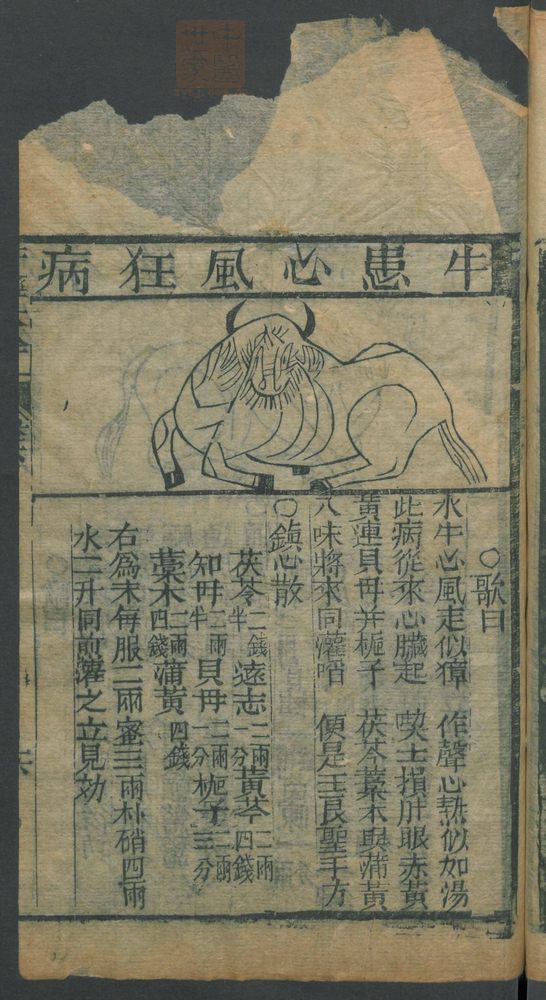 牛患心風狂病
○歌曰
水牛心風走似獐　作聲心熱似如湯
此病從來心臟起　喫土損肝眼赤黃
黃連貝母并梔子　茯苓藁本與蒲黃
八味將來同灌啗　便是王良聖手方
○鎮心散
茯苓二錢半　遠志二兩一分　黃芩二兩四錢
知母二兩半　貝母二兩一分　梔子二兩三分
藁本二兩四錢　蒲黃四錢
右爲末每服二兩蜜三兩朴硝四兩
水二升同煎灌之立見効